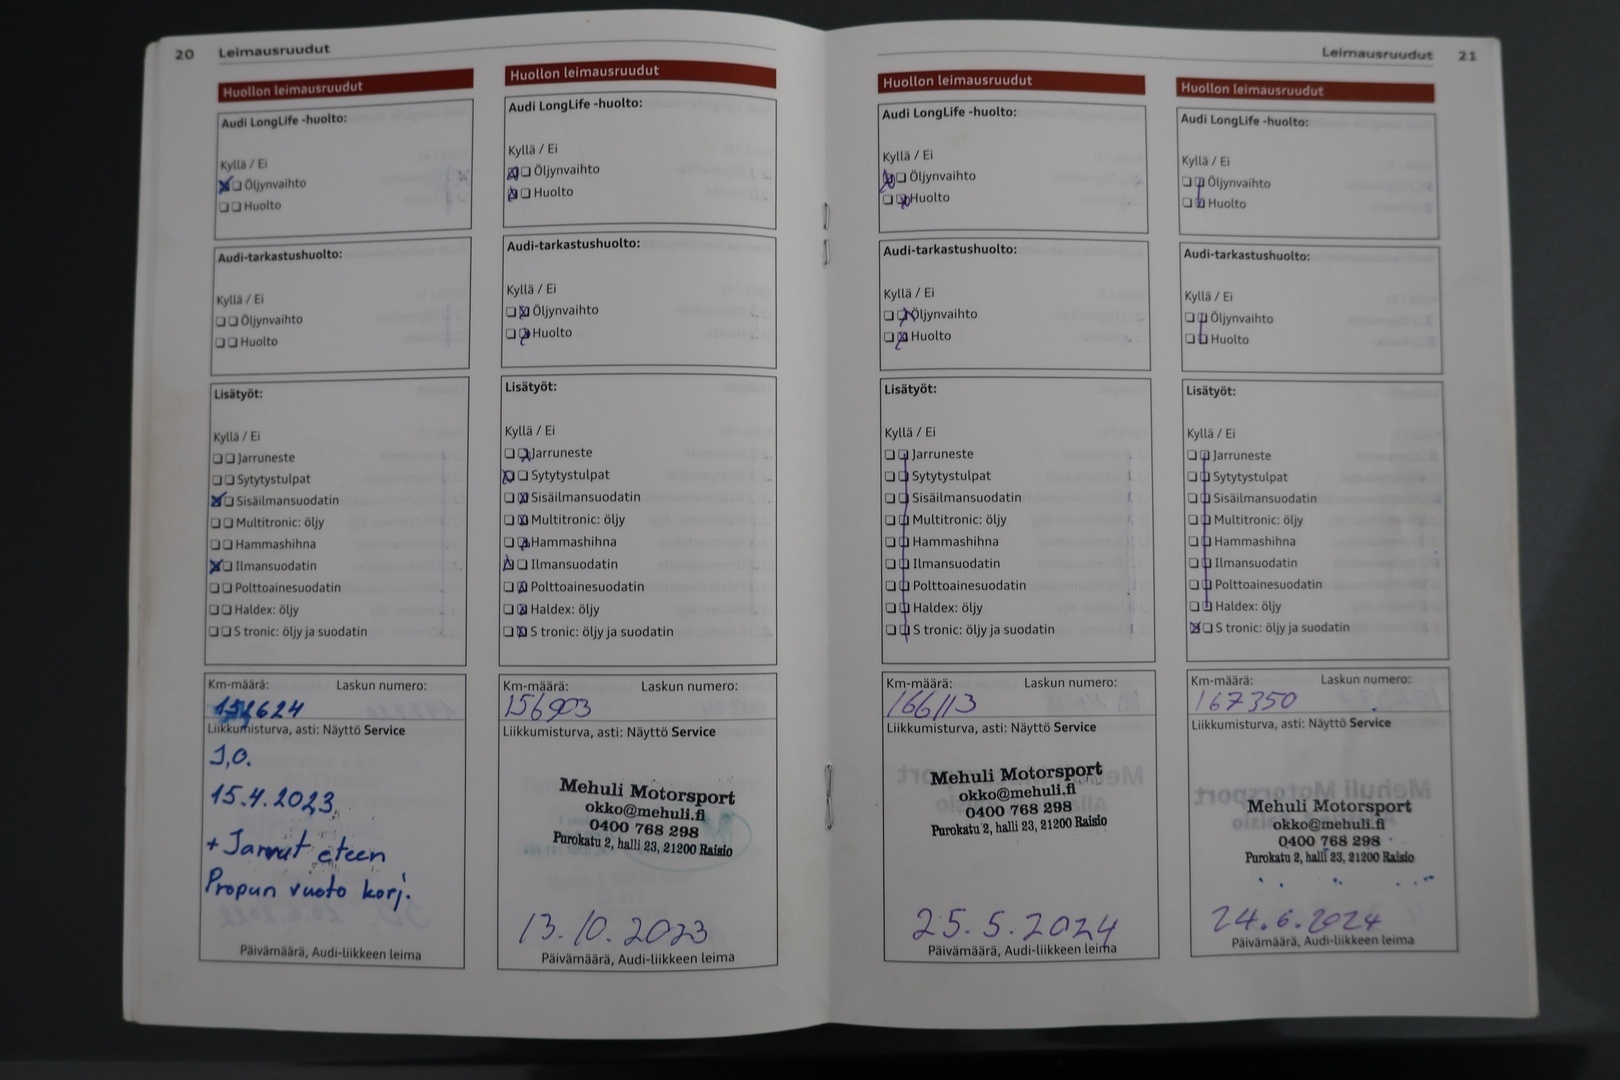 20 Leimausruudut
Huollon leimausruudut
Audi LongLife -huolto:
Kyllä / Ei
Öljynvaihto
Huolto
Audi-tarkastushuolto:
Kyllä / Ei
Öljynvaihto
Huolto
Lisätyöt:
Kyllä / Ei
Jarruneste
Sytytystulpat
Sisäilmansuodatin
Multitronic: öljy
Hammashihna
Ilmansuodatin
Polttoainesuodatin
Haldex: öljy
S tronic: öljy ja suodatin
Km-määrä: Laskun numero:
152624
Liikkumisturva, asti: Näyttö Service
J.O.
15.4.2023
+ Jarrut eteen
Propun vuoto korj.
Päivämäärä, Audi-liikkeen leima
Huollon leimausruudut
Audi LongLife -huolto:
Kyllä / Ei
Öljynvaihto
Huolto
Audi-tarkastushuolto:
Kyllä / Ei
Öljynvaihto
Huolto
Lisätyöt:
Kyllä / Ei
Jarruneste
Sytytystulpat
Sisäilmansuodatin
Multitronic: öljy
Hammashihna
Ilmansuodatin
Polttoainesuodatin
Haldex: öljy
S tronic: öljy ja suodatin
Km-määrä: Laskun numero:
156903
Liikkumisturva, asti: Näyttö Service
Mehuli Motorsport
okko@mehuli.fi
0400 768 298
Purokatu 2, halli 23, 21200 Raisio
13.10.2023
Päivämäärä, Audi-liikkeen leima
Leimausruudut 21
Huollon leimausruudut
Audi LongLife -huolto:
Kyllä / Ei
Öljynvaihto
Huolto
Audi-tarkastushuolto:
Kyllä / Ei
Öljynvaihto
Huolto
Lisätyöt:
Kyllä / Ei
Jarruneste
Sytytystulpat
Sisäilmansuodatin
Multitronic: öljy
Hammashihna
Ilmansuodatin
Polttoainesuodatin
Haldex: öljy
S tronic: öljy ja suodatin
Km-määrä: Laskun numero:
166113
Liikkumisturva, asti: Näyttö Service
Mehuli Motorsport
okko@mehuli.fi
0400 768 298
Purokatu 2, halli 23, 21200 Raisio
25.5.2024
Päivämäärä, Audi-liikkeen leima
Huollon leimausruudut
Audi LongLife -huolto:
Kyllä / Ei
Öljynvaihto
Huolto
Audi-tarkastushuolto:
Kyllä / Ei
Öljynvaihto
Huolto
Lisätyöt:
Kyllä / Ei
Jarruneste
Sytytystulpat
Sisäilmansuodatin
Multitronic: öljy
Hammashihna
Ilmansuodatin
Polttoainesuodatin
Haldex: öljy
S tronic: öljy ja suodatin
Km-määrä: Laskun numero:
167350
Liikkumisturva, asti: Näyttö Service
Mehuli Motorsport
okko@mehuli.fi
0400 768 298
Purokatu 2, halli 23, 21200 Raisio
24.6.2024
Päivämäärä, Audi-liikkeen leima